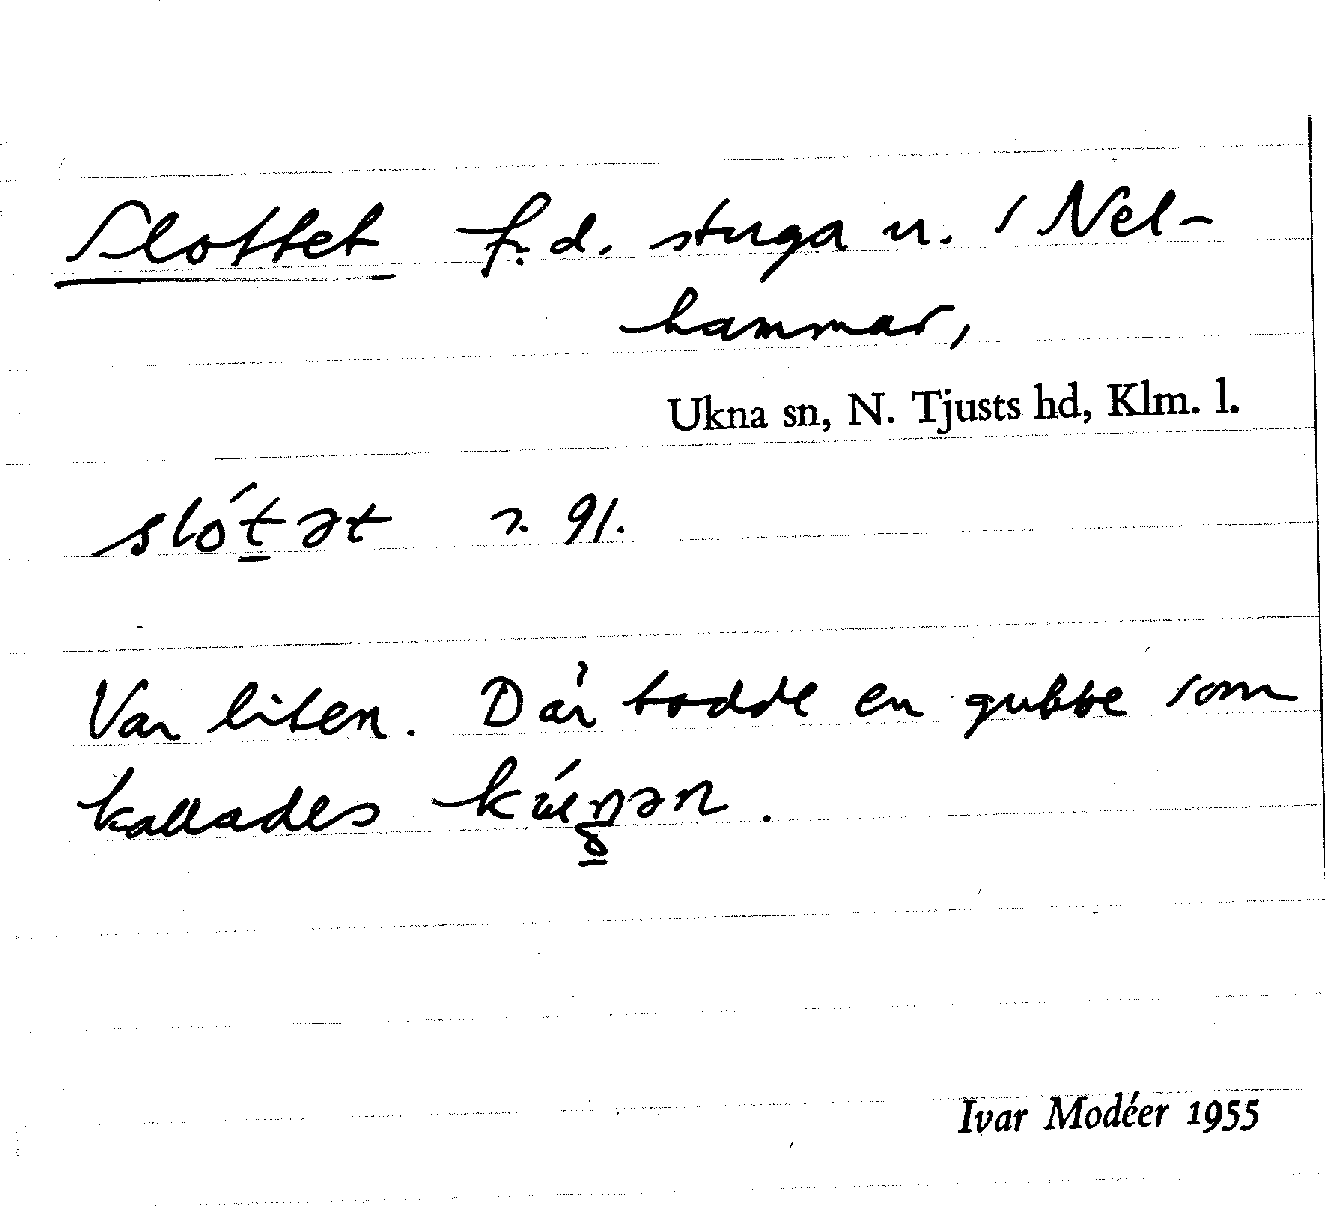 Slottet f.d. stuga u. / Nel-
hammar,
Ukna sn, N. Tjusts hd, Klm. l.
slót̲ət 91.
Var liten. Där bodde en gubbe som
kallades
Ivar Modéer 1955